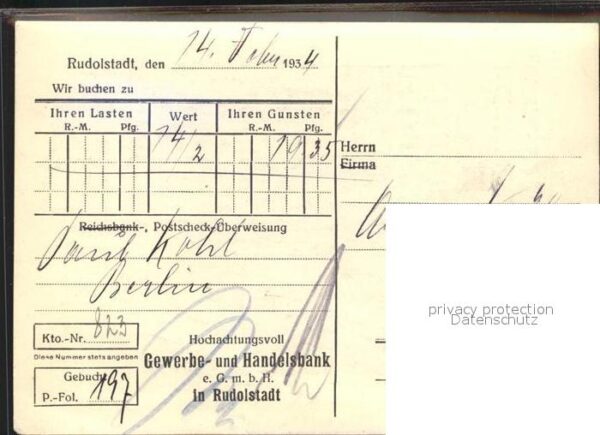 Rudolstadt, den 14. Febr. 1934
Wir buchen zu
Ihren Lasten Wert Ihren Gunsten
R.-M. Pfg. R.-M. Pfg.
14/2 19 35
Herrn
Firma
Reichsbank-, Postscheck-Überweisung
Paul Kohl
Berlin
Kto.-Nr. 823
Diese Nummer stets angeben
Gebucht
P.-Fol. 197
Hochachtungsvoll
Gewerbe- und Handelsbank
e. G. m. b. H.
in Rudolstadt
privacy protection
Datenschutz